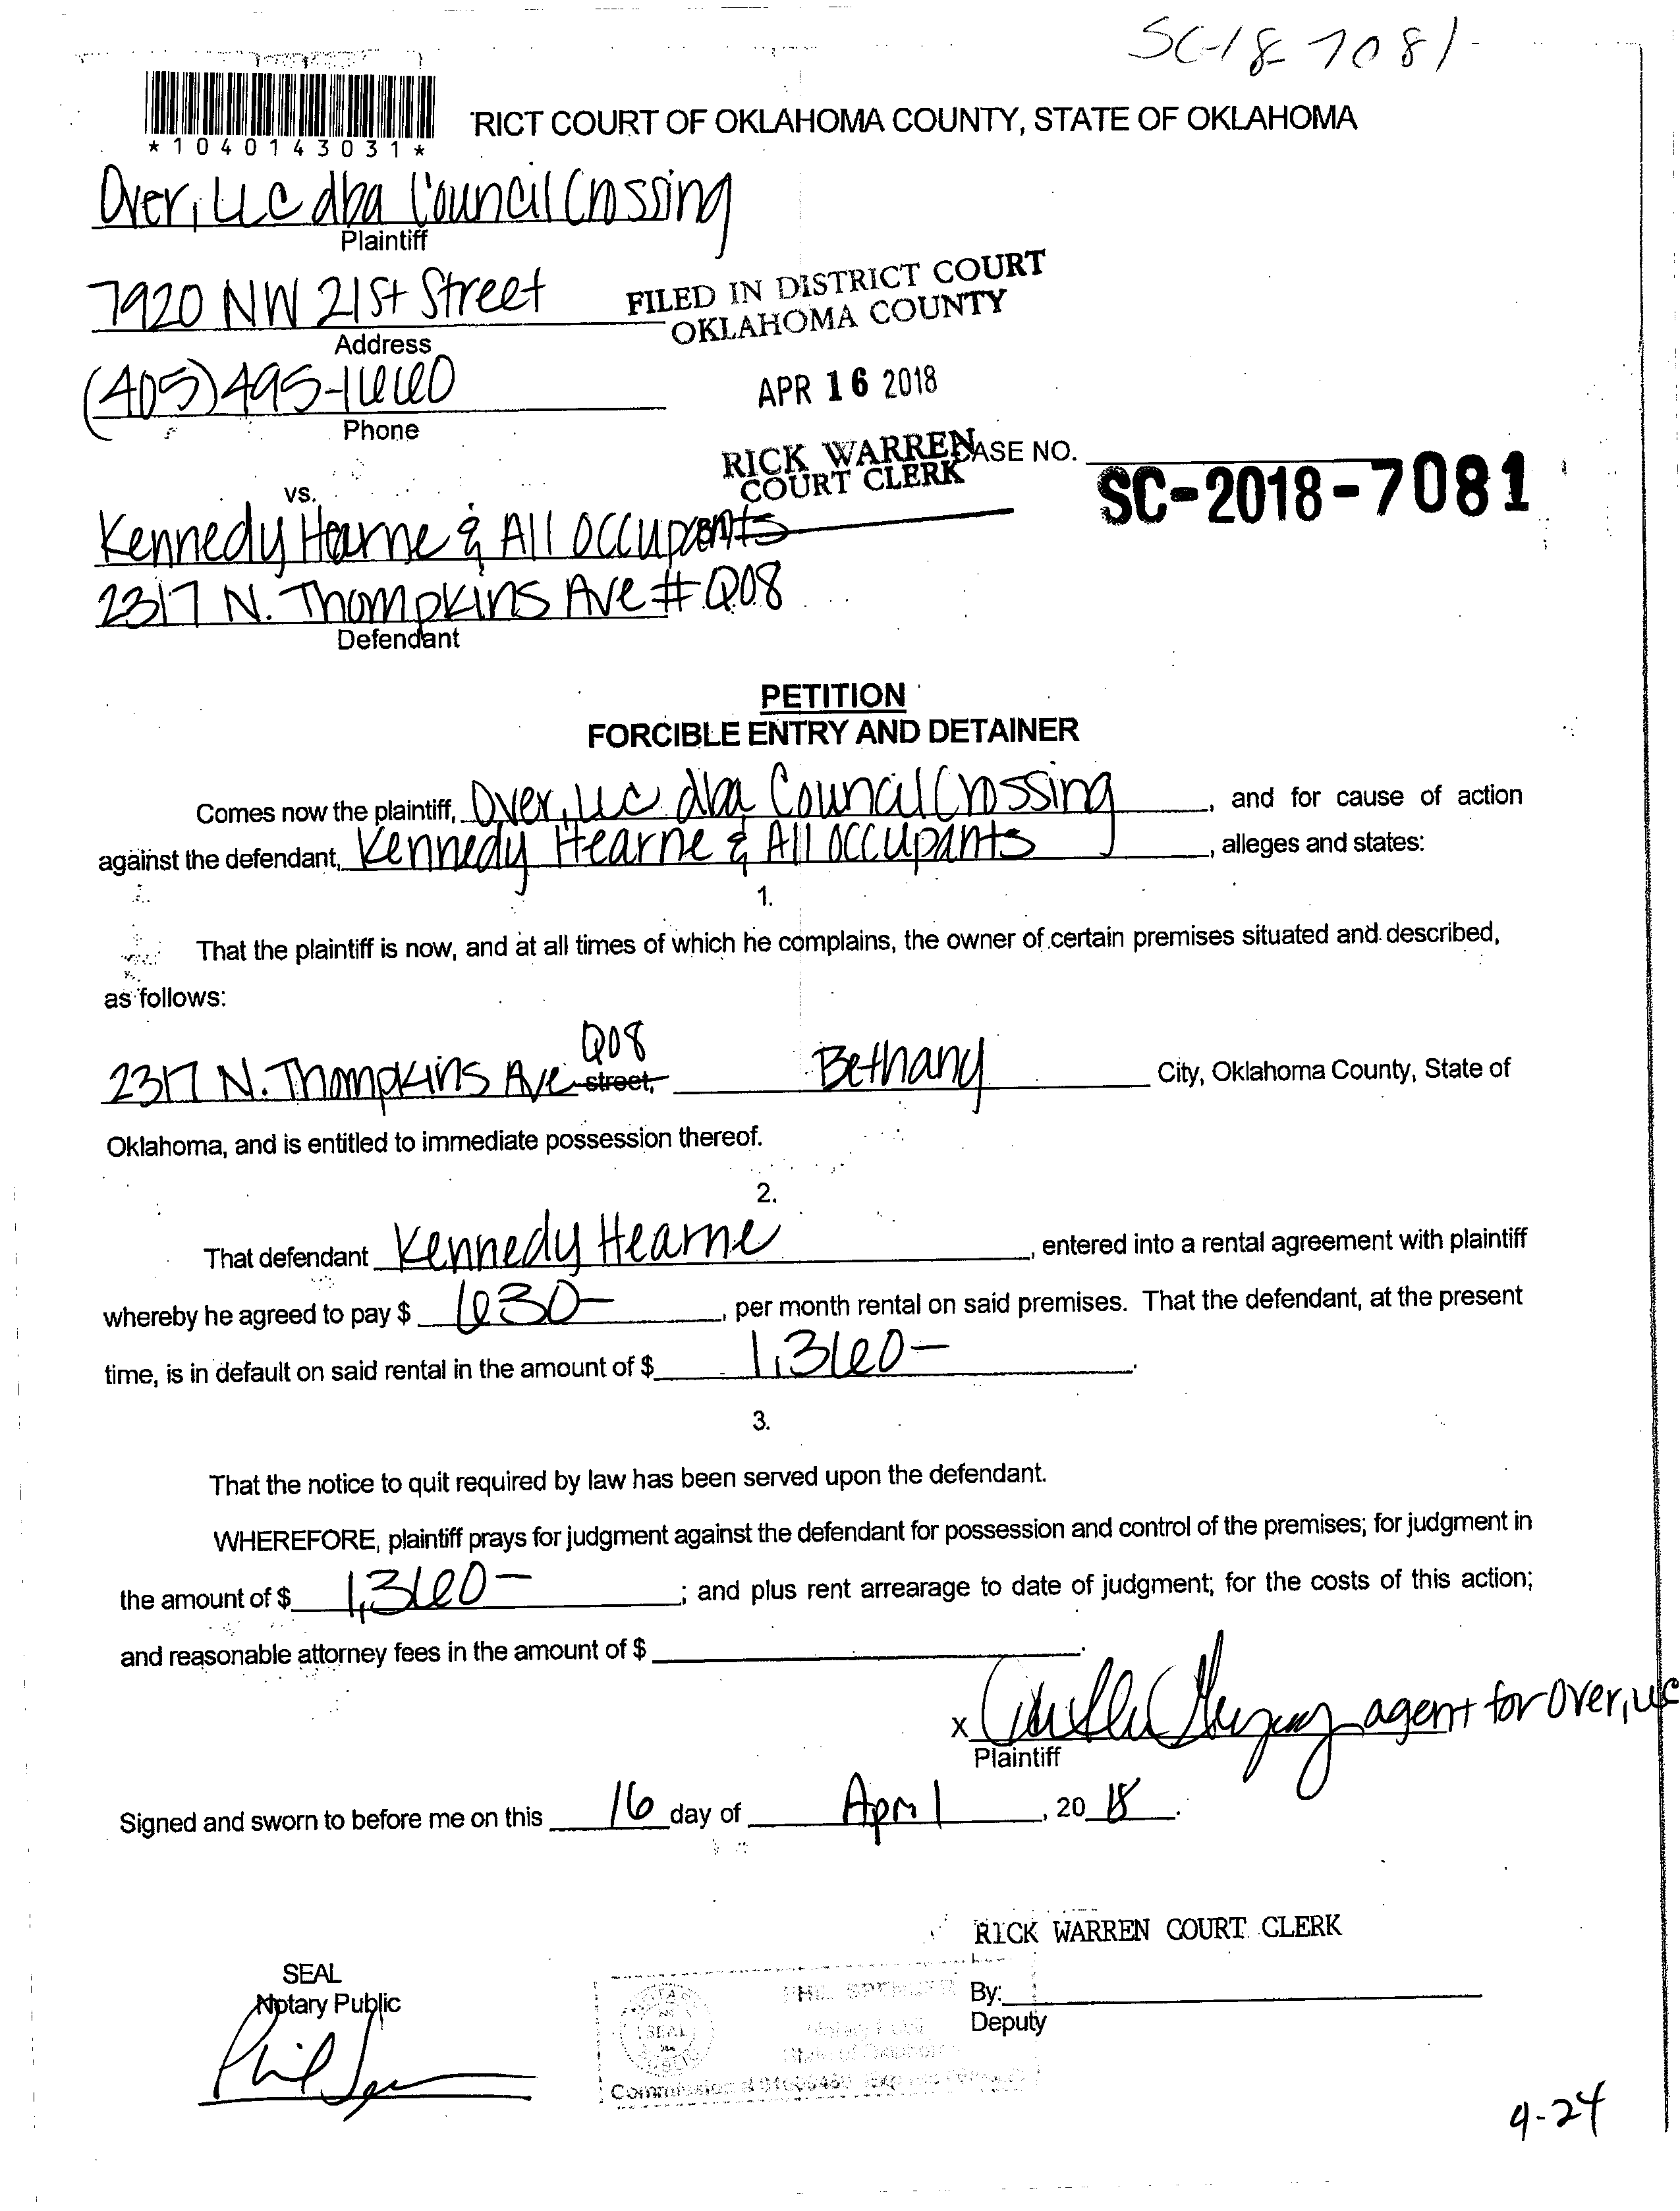 SC-18-7081-
*1040143031*
RICT COURT OF OKLAHOMA COUNTY, STATE OF OKLAHOMA
Over, LLC dba Council Crossing
Plaintiff
7920 NW 21st Street
FILED IN DISTRICT COURT
OKLAHOMA COUNTY
Address
(405) 495-1660
APR 16 2018
Phone
RICK WARREN
COURT CLERK
ASE NO.
SC-2018-7081
vs.
Kennedy Hearne & All Occupants
2317 N. Thompkins Ave #Q08
Defendant
PETITION
FORCIBLE ENTRY AND DETAINER
Comes now the plaintiff, Over, LLC dba Council Crossing, and for cause of action
against the defendant, Kennedy Hearne & All Occupants, alleges and states:
1.
That the plaintiff is now, and at all times of which he complains, the owner of certain premises situated and described,
as follows:
Q08
2317 N. Thompkins Ave street, Bethany City, Oklahoma County, State of
Oklahoma, and is entitled to immediate possession thereof.
2.
That defendant Kennedy Hearne, entered into a rental agreement with plaintiff
whereby he agreed to pay $ 630-, per month rental on said premises. That the defendant, at the present
time, is in default on said rental in the amount of $ 1,360-.
3.
That the notice to quit required by law has been served upon the defendant.
WHEREFORE, plaintiff prays for judgment against the defendant for possession and control of the premises; for judgment in
the amount of $ 1,360-; and plus rent arrearage to date of judgment; for the costs of this action;
and reasonable attorney fees in the amount of $.
x agent for Over, LLC
Plaintiff
Signed and sworn to before me on this 16 day of April, 2018.
RICK WARREN COURT CLERK
SEAL
Notary Public
By:
Deputy
SEAL
Commission #
4-24